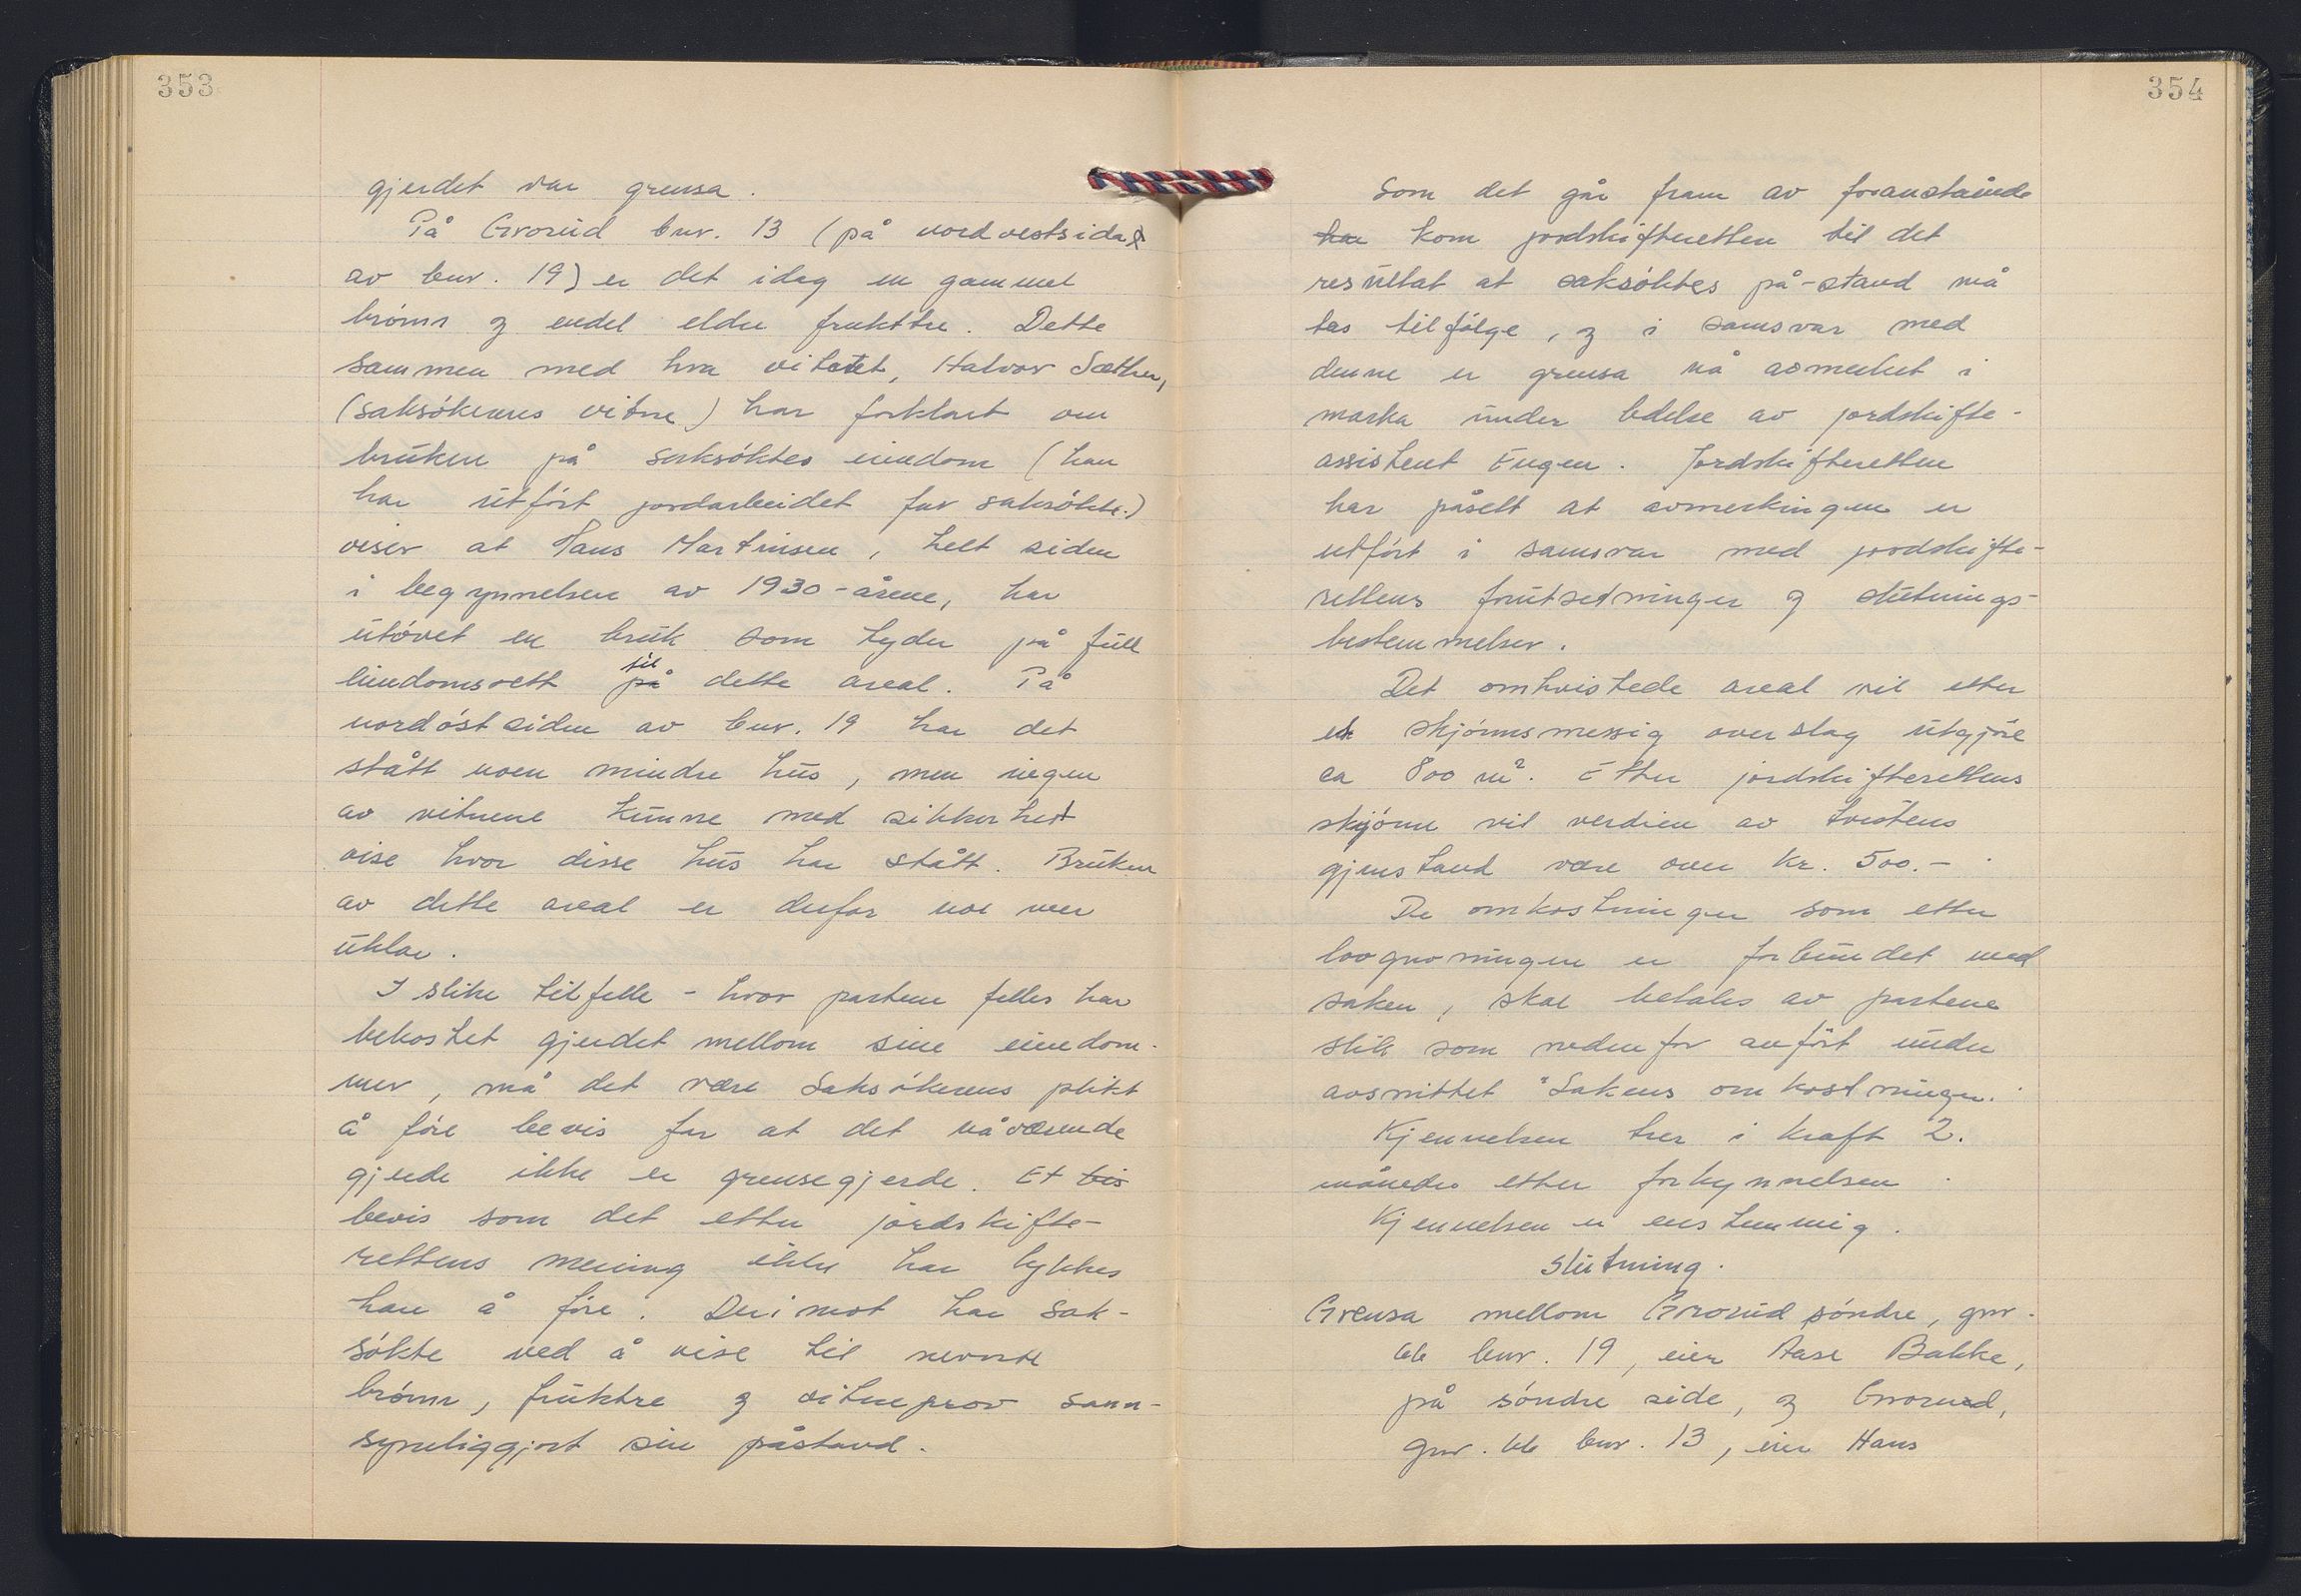 353
gjerdet var grensa.
På Grorud bnr. 13 (på nordvestsida
av bnr. 19) er det idag en gammel
brønn og endel eldre frukttre. Dette
sammen med hva vitnet, Halvor Sæther,
(saksøkerens vitne) har forklart om
bruken på saksøktes eiendom (han
har utført jordarbeidet for saksøkte.)
viser at Hans Martinsen, helt siden
i begynnelsen av 1930-årene, har
utøvet en bruk som tyder på full
eiendomsrett til på dette areal. På
nordøstsiden av bnr. 19 har det
stått noen mindre hus, men ingen
av vitnene kunne med sikkerhet
vise hvor disse hus har stått. Bruken
av dette areal er derfor noe mer
uklar.
I slike tilfelle - hvor partene felles har
bekostet gjerdet mellom sine eiendom-
mer, må det være saksøkerens plikt
å føre bevis for at det nåværende
gjerde ikke er grensegjerde. Et
bevis som det etter jordskifte-
rettens mening ikke har lykkes
han å føre. Derimot har sak-
søkte ved å vise til nevnte
brønn, fruktre og vitneprov sann-
synliggjort sin påstand.
354
Som det går fram av foranstående
har kom jordskifteretten til det
resultat at saksøktes på-stand må
tas tilfølge, og i samsvar med
denne er grensa nå avmerket i
marka under ledelse av jordskifte-
assistent Engen. Jordskifteretten
har påsett at avmerkingen er
utført i samsvar med jordskifte-
rettens forutsetninger og slutnings-
bestemmelser.
Det omtvistede areal vil etter
et skjønnsmessig overslag utgjøre
ca 800 m². Etter jordskifterettens
skjønn vil verdien av tvistens
gjenstand være over kr. 500.-
De omkostninger som etter
lovgivningen er forbundet med
saken, skal betales av partene
slik som nedenfor anført under
avsnittet "Sakens omkostninger.
Kjennelsen trer i kraft 2.
måneder etter forkynnelsen.
Kjennelsen er enstemmig.
Slutning.
Grensa mellom Grorud søndre, gnr.
66 bnr. 19, eier Aase Bakke,
på søndre side, og Grorud,
gnr. 66 bnr. 13, eier Hans